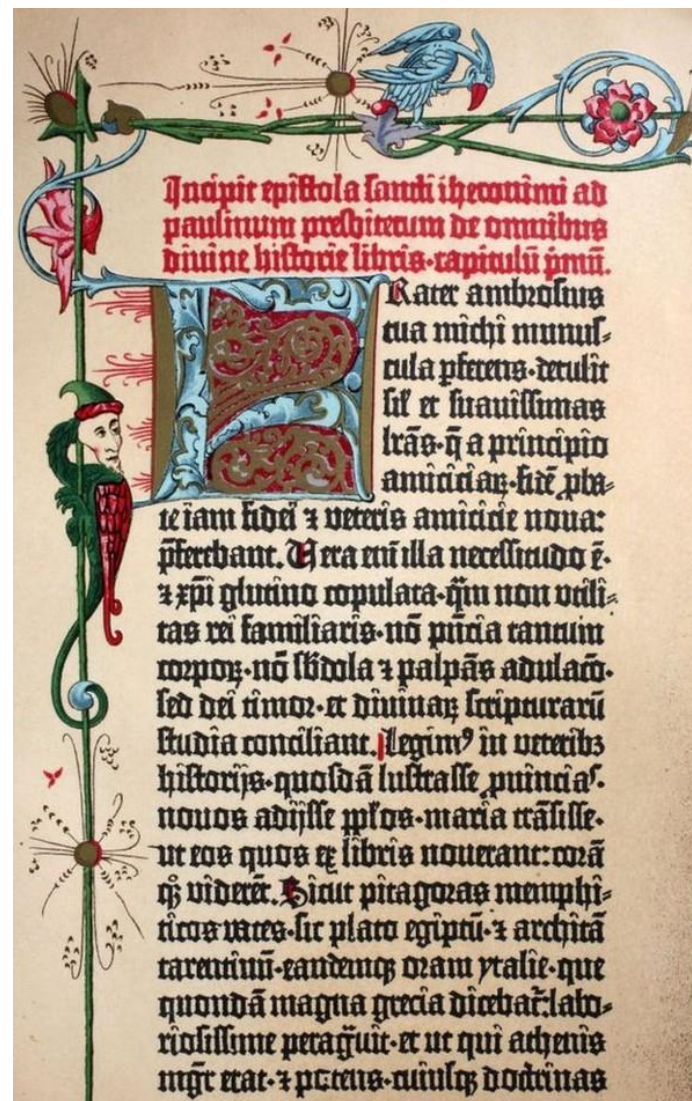 Incipit epistola sancti iheronimi ad
paulinum presbiterum de omnibus
divine historie libris·capitulū pmū.
FRater ambrosius
tua michi munus⸗
cula pferens·detulit
sił et suavissimas
lrās·q̄ a principio
amiciciaꝝ·fidē ꝓba⸗
te iam fidei ⁊ veteris amicicie nova:
pferebant. Vera em̄ illa necessitudo ē·
⁊ xp̄i glutino copulata·q̄m non utili⸗
tas rei familiaris·nō pn̄cia tantum
corpoꝝ·nō sb̄dola ⁊ palpās adulac̄o·
sed dei timor·et divinaꝝ scripturarū
studia conciliant. Legimꝰ in veteribꝫ
historijs·quosdā lustrasse ꝓuincias·
novos adijsse pp̄los·maria trāsisse·
ut eos quos ex libris noverant: corā
qꝫ viderēt. Sicut pitagoras memphi⸗
ticos vates·sic plato egiptū·⁊ architā
tarentinū·eandemqꝫ oram ytalie·que
quondā magna grecia dicebat̄: labo⸗
riosissime peragūit·et ut qui athenis
mgr̄ erat·⁊ potens·cuiusqꝫ doctrinas